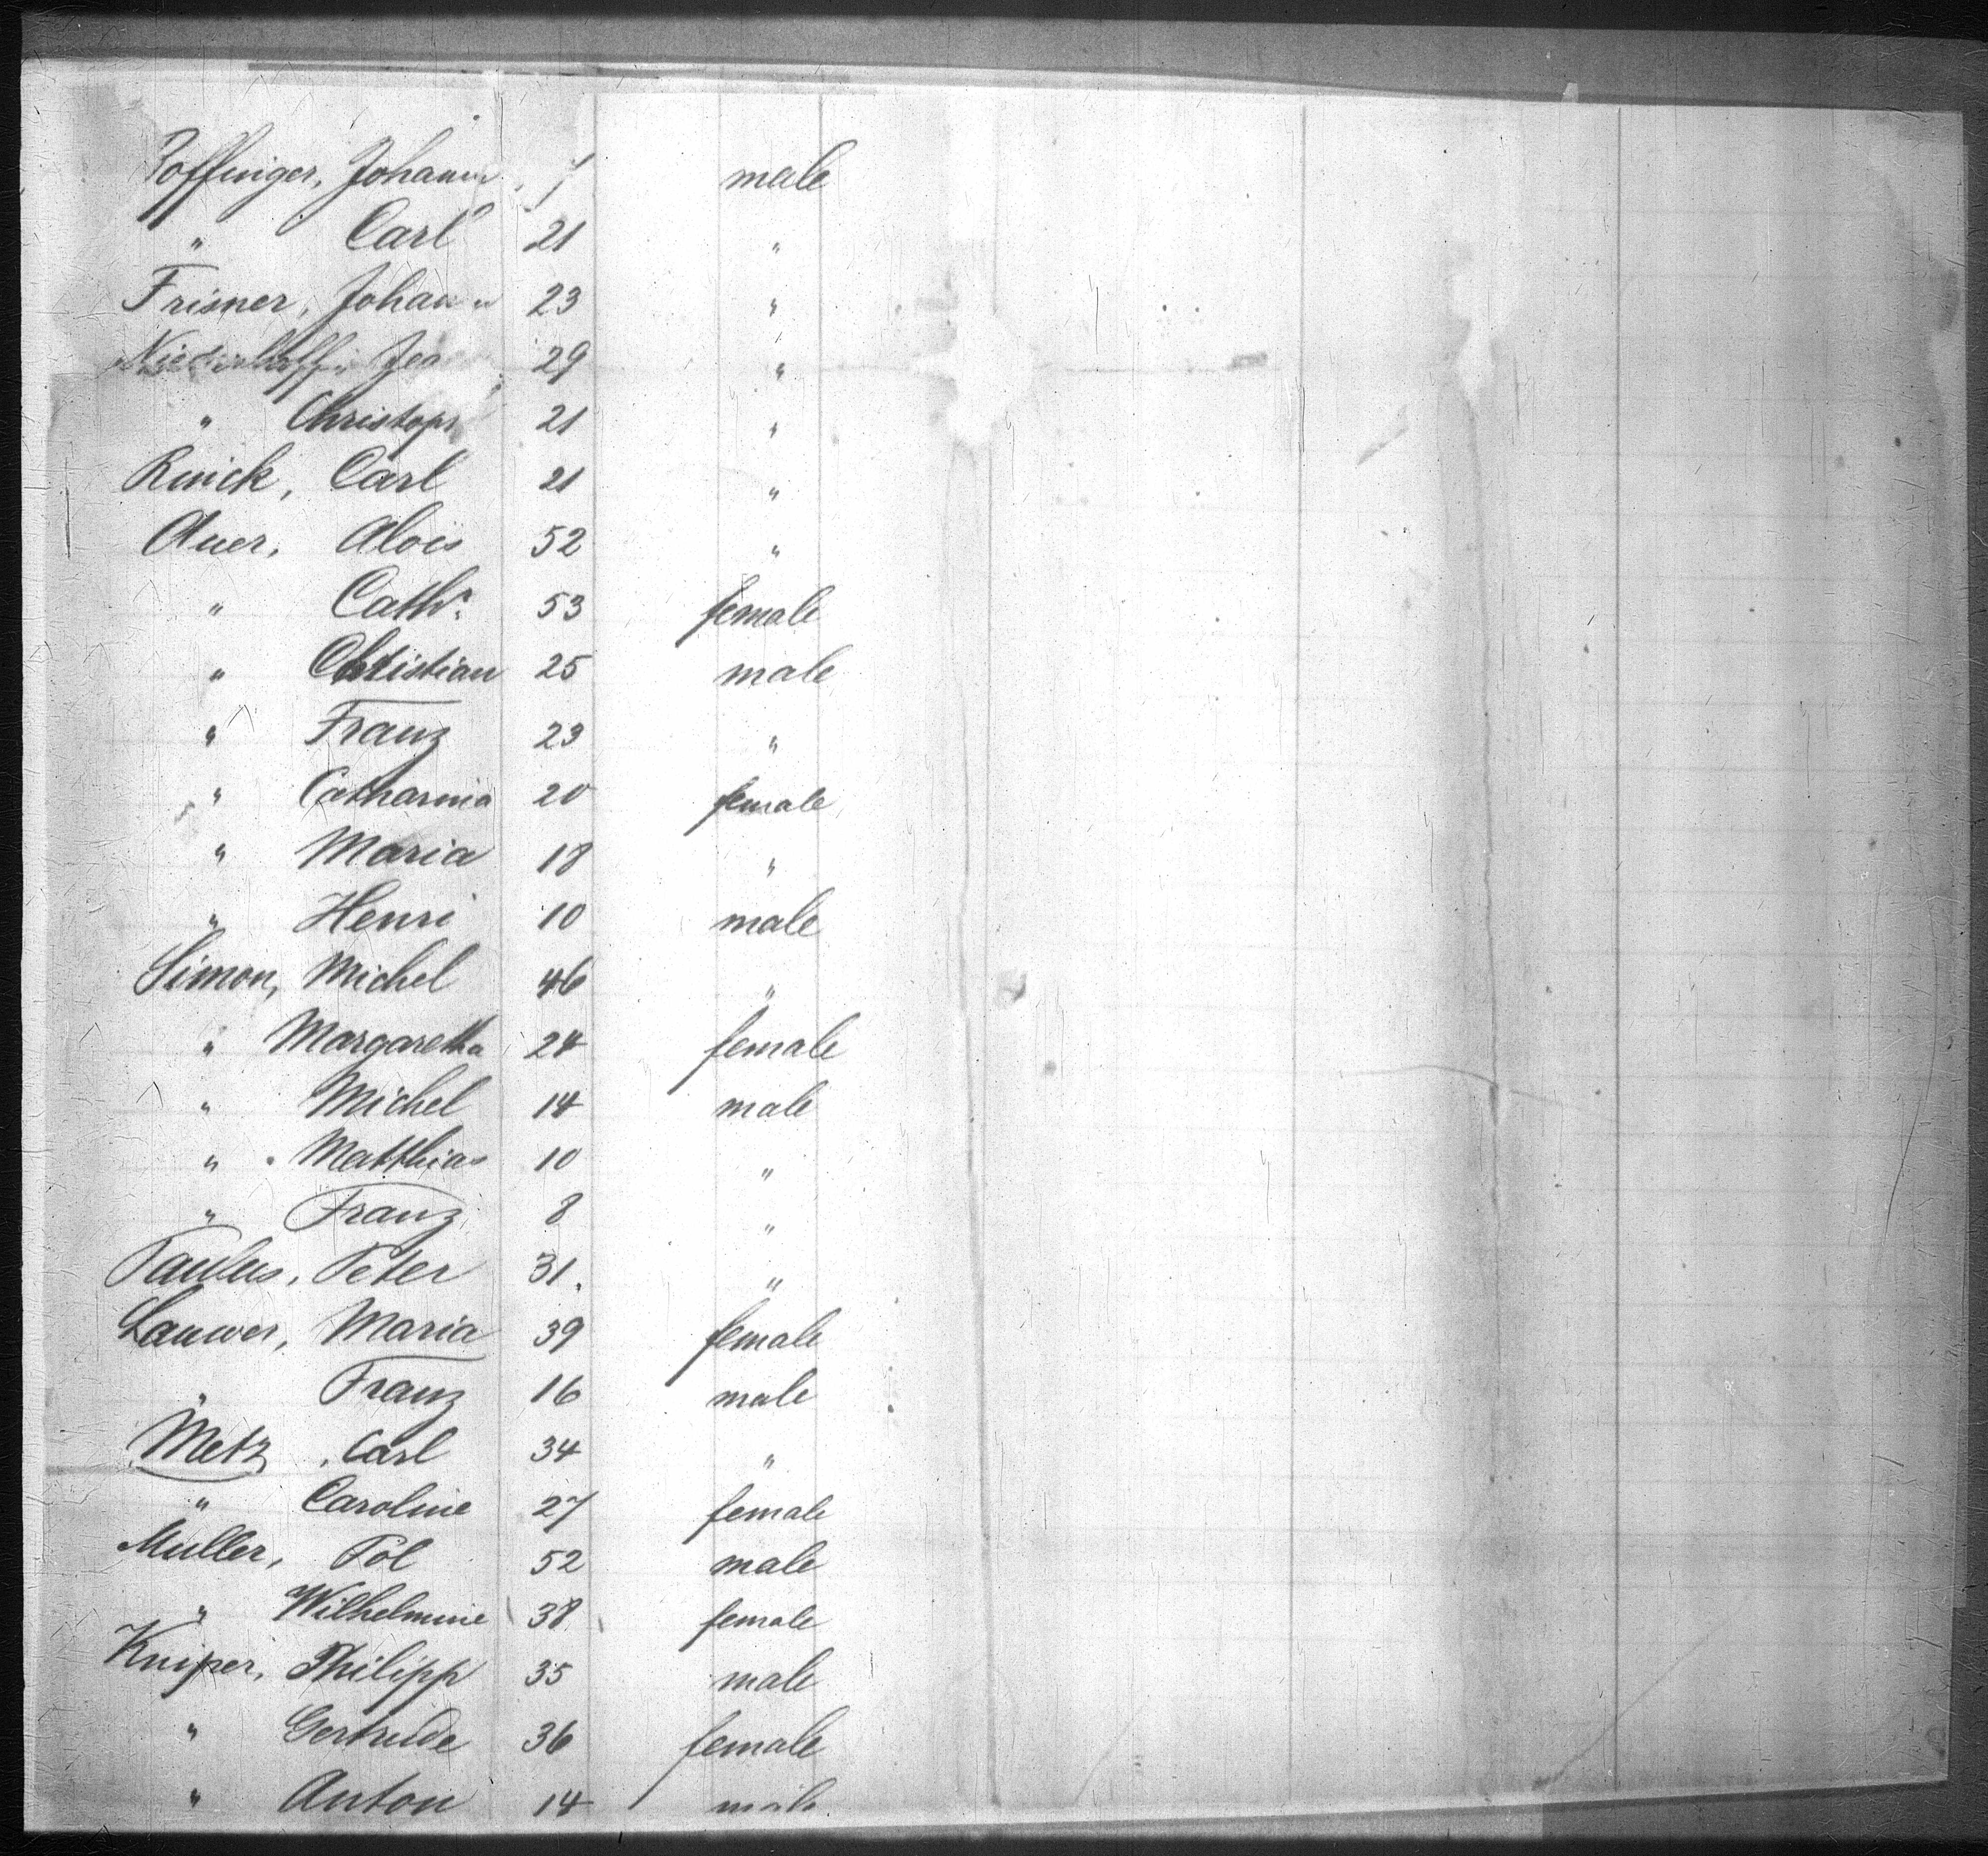 Poffinger, Johann male
" Carl 21 "
Frisner, Johann 23 "
29 "
" Christoph 21 "
Ruick, Carl 21 "
Auer, Alois 52 "
" Cath.a 53 female
" Christian 25 male
" Franz 23 "
" Catharina 20 female
" Maria 18 "
" Henri 10 male
Simon, Michel 46 "
" Margaretha 24 female
" Michel 14 male
" Matthias 10 "
" Franz 8 "
Paulus, Peter 31. "
Lauwer, Maria 39 female
" Franz 16 male
Metz, Carl 34 "
" Caroline 27 female
Muller, Pol 52 male
" Wilhelmine 38 female
Kniper, Philipp 35 male
" Gertrude 36 female
" Anton 14 male